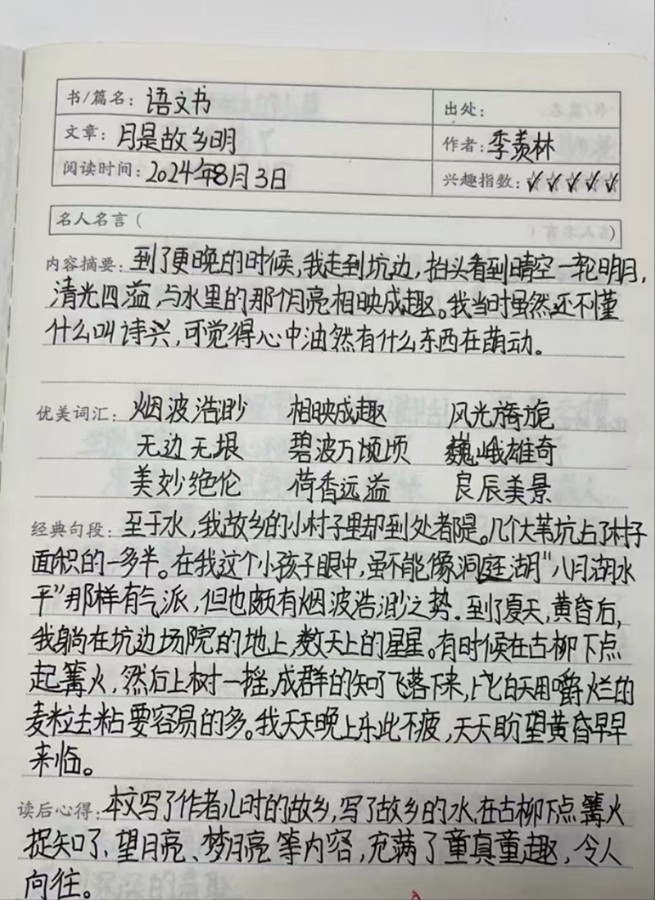 书/篇名：语文书 出处：
文章：月是故乡明 作者：季羡林
阅读时间：2024年8月3日 兴趣指数：☆☆☆☆☆
名人名言（ ）
内容摘要：到了更晚的时候，我走到坑边，抬头看到晴空一轮明月，
清光四溢，与水里的那个月亮相映成趣。我当时虽然还不懂
什么叫诗兴，可觉得心中油然有什么东西在萌动。
优美词汇：烟波浩渺 相映成趣 风光旖旎
无边无垠 碧波万顷 巍峨雄奇
美妙绝伦 荷香远溢 良辰美景
经典句段：至于水，我故乡的小村子里却到处都是。几个大苇坑占了村子
面积的一多半。在我这个小孩子眼中，虽不能像洞庭湖“八月湖水
平”那样有气派，但也颇有烟波浩渺之势。到了夏天，黄昏后，
我躺在坑边场院的地上，数天上的星星。有时候在古柳下点
起篝火，然后上树一摇，成群的知了飞落下来，比白天用嚼烂的
麦粒去粘要容易的多。我天天晚上乐此不疲，天天盼望黄昏早早
来临。
读后心得：本文写了作者儿时的故乡，写了故乡的水，在古柳下点篝火
捉知了、望月亮、梦月亮等内容，充满了童真童趣，令人
向往。